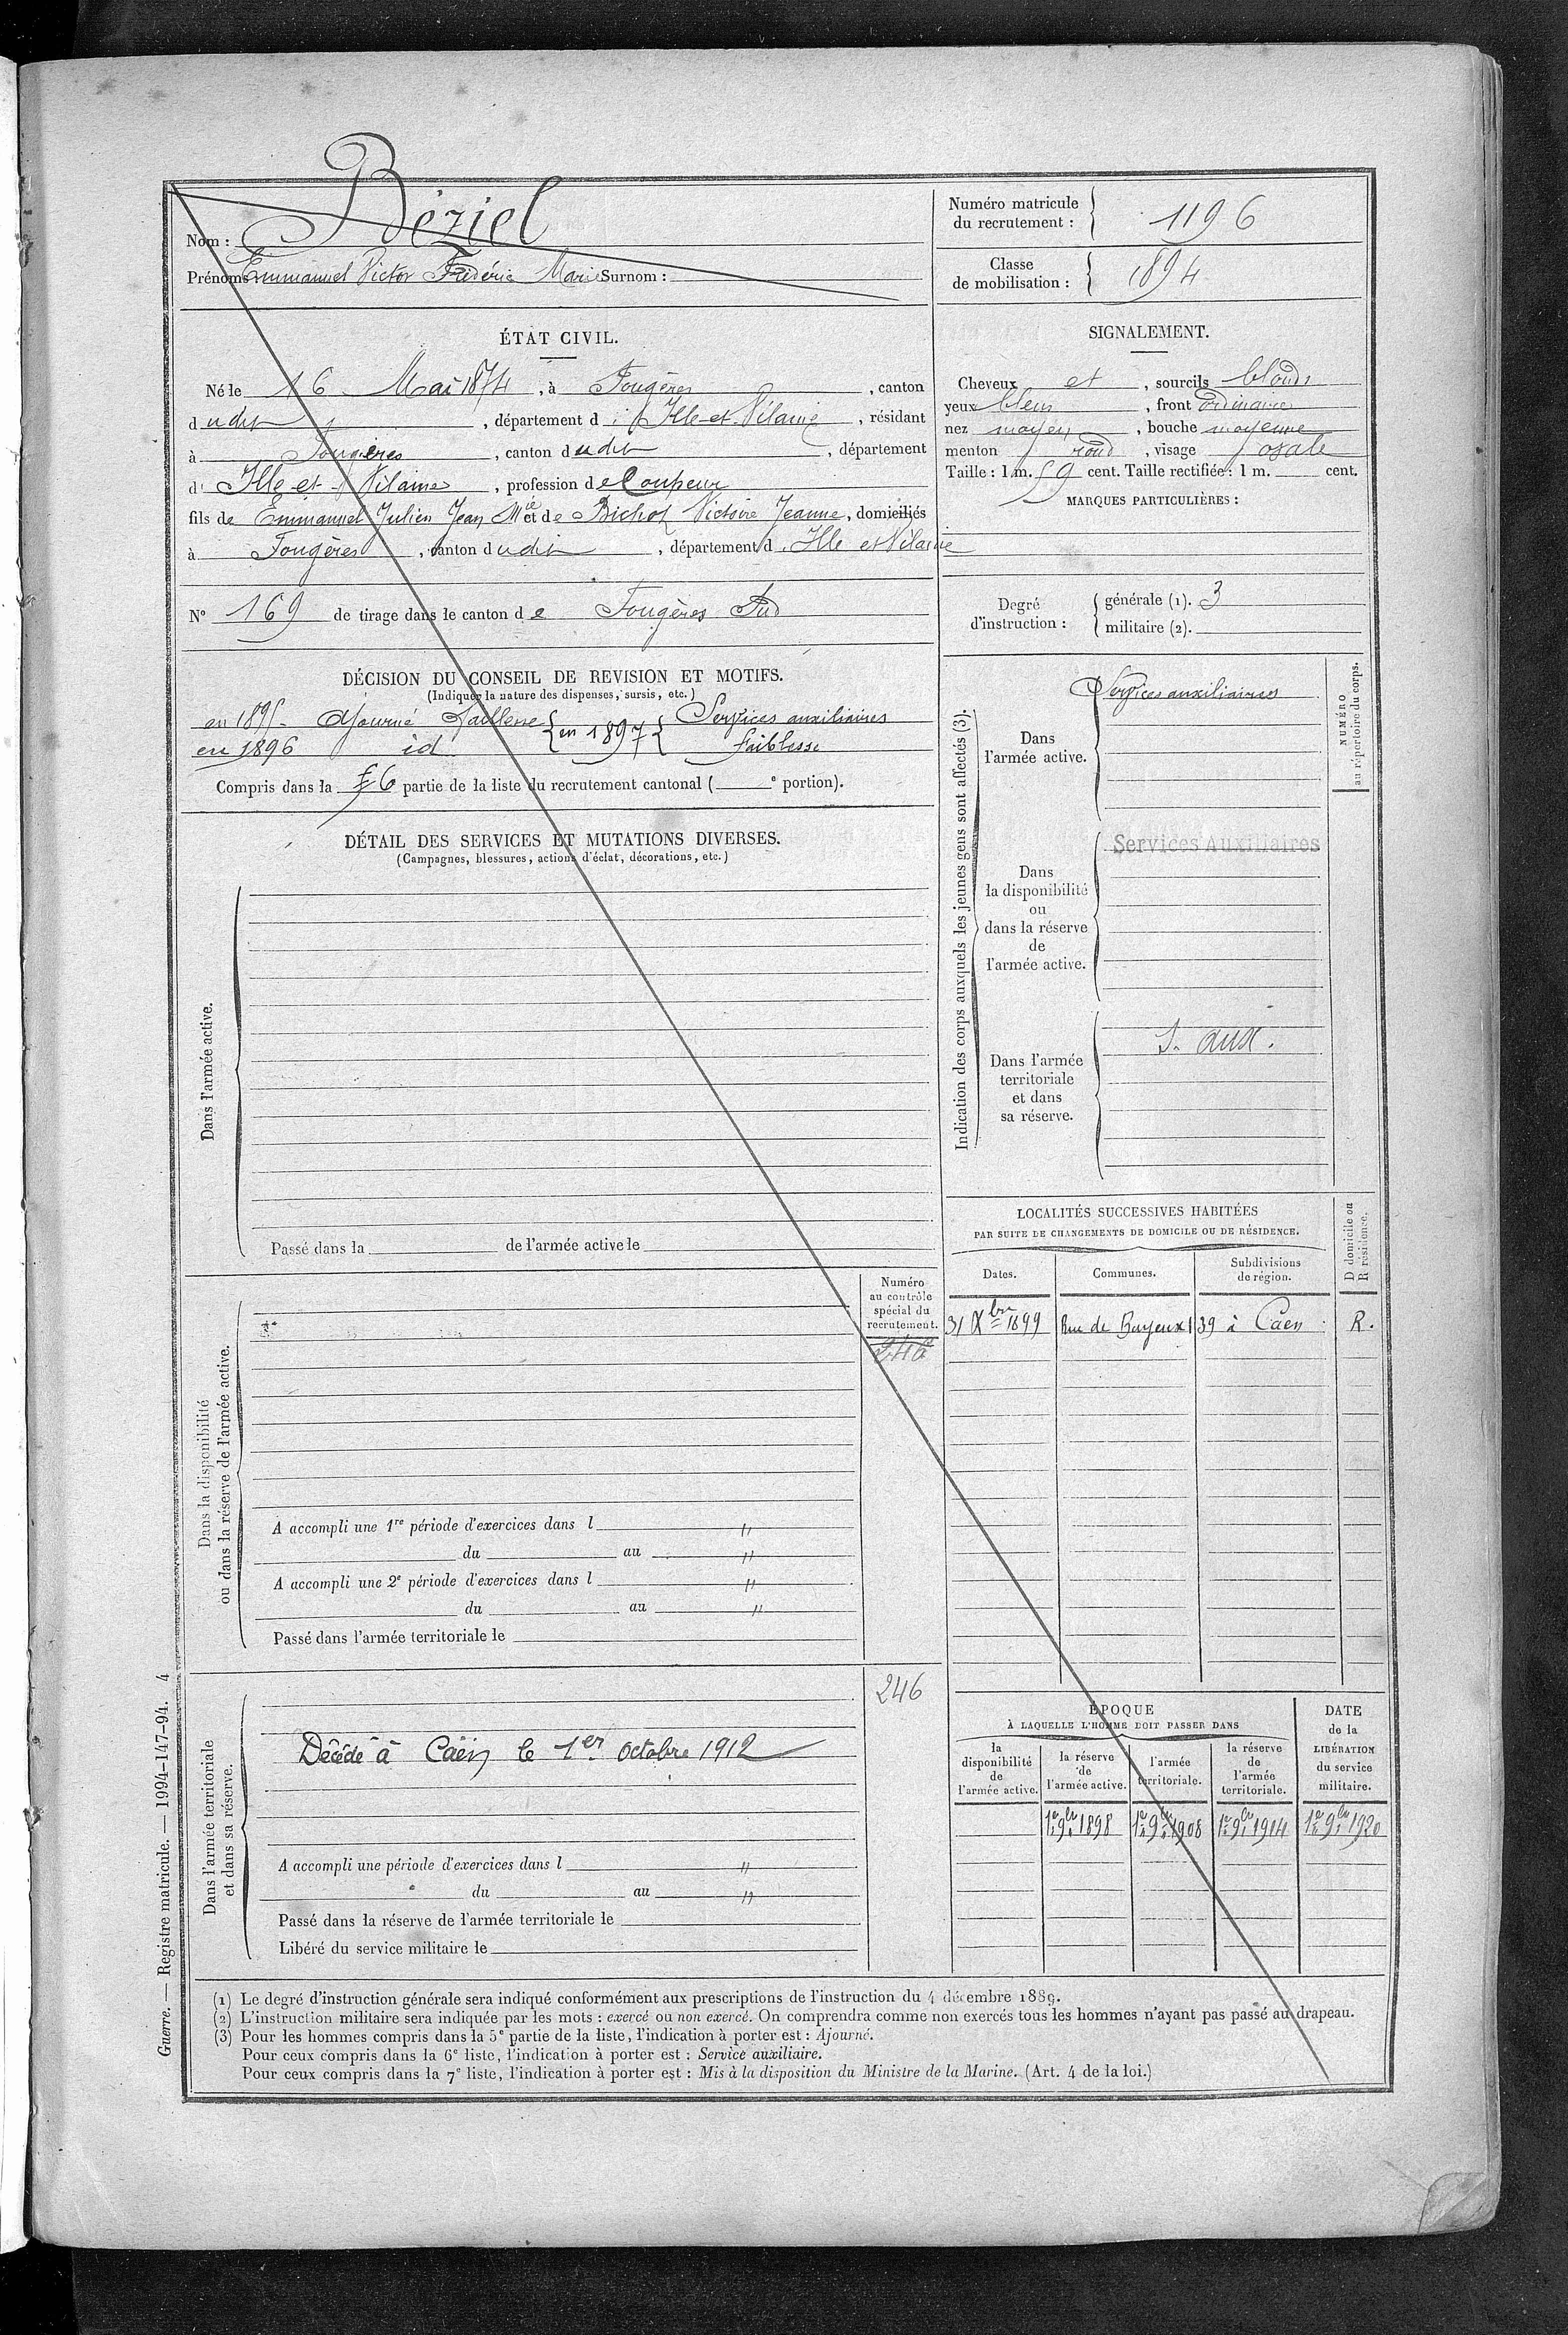 Nom : Béziel
Prénoms : Emmanuel Victor Frédéric Marie Surnom :
Numéro matricule du recrutement : 1196
Classe de mobilisation : 1894
ÉTAT CIVIL.
Né le 16 Mai 1874, à Fougères, canton
dudit, département d'Ille-et-Vilaine, résidant
à Fougères, canton dudit, département
d'Ille-et-Vilaine, profession de Coupeur
fils de Emmanuel Julien Jean Mie et de Bichot Victoire Jeanne, domiciliés
à Fougères, canton dudit, département d'Ille et Vilaine
N° 169 de tirage dans le canton de Fougères Sud
SIGNALEMENT.
Cheveux et, sourcils blonds
yeux bleus, front ordinaire
nez moyen, bouche moyenne
menton rond, visage ovale
Taille : 1 m. 59 cent. Taille rectifiée : 1 m. cent.
MARQUES PARTICULIÈRES :
Degré d'instruction : générale (1). 3
militaire (2).
DÉCISION DU CONSEIL DE REVISION ET MOTIFS.
(Indiquer la nature des dispenses, sursis, etc.)
en 1895 Ajourné faiblesse en 1897 Services auxiliaires
en 1896 id faiblesse
Compris dans la 6 partie de la liste du recrutement cantonal ( e portion).
DÉTAIL DES SERVICES ET MUTATIONS DIVERSES.
(Campagnes, blessures, actions d'éclat, décorations, etc.)
Dans l'armée active.
Passé dans la de l'armée active le
Indication des corps auxquels les jeunes gens sont affectés (3).
NUMÉRO au répertoire du corps.
Dans l'armée active.
Services auxiliaires
Dans la disponibilité ou dans la réserve de l'armée active.
Services Auxiliaires
Dans l'armée territoriale et dans sa réserve.
S. aux.
LOCALITÉS SUCCESSIVES HABITÉES
PAR SUITE DE CHANGEMENTS DE DOMICILE OU DE RÉSIDENCE.
Dates. Communes. Subdivisions de région. D domicile ou R résidence.
31 Xbre 1899 Rue de Bayeux 139 à Caen R.
Dans la disponibilité ou dans la réserve de l'armée active.
Numéro au contrôle spécial du recrutement.
246
A accompli une 1re période d'exercices dans l "
du au "
A accompli une 2e période d'exercices dans l "
du au "
Passé dans l'armée territoriale le
Dans l'armée territoriale et dans sa réserve.
246
Décédé à Caen le 1er Octobre 1912
A accompli une période d'exercices dans l "
du au "
Passé dans la réserve de l'armée territoriale le
Libéré du service militaire le
ÉPOQUE
À LAQUELLE L'HOMME DOIT PASSER DANS
la disponibilité de l'armée active.
la réserve de l'armée active.
l'armée territoriale.
la réserve de l'armée territoriale.
DATE de la LIBÉRATION du service militaire.
1er 9bre 1898 1er 9bre 1908 1er 9bre 1914 1er 9bre 1920
(1) Le degré d'instruction générale sera indiqué conformément aux prescriptions de l'instruction du 4 décembre 1889.
(2) L'instruction militaire sera indiquée par les mots : exercé ou non exercé. On comprendra comme non exercés tous les hommes n'ayant pas passé au drapeau.
(3) Pour les hommes compris dans la 5e partie de la liste, l'indication à porter est : Ajourné.
Pour ceux compris dans la 6e liste, l'indication à porter est : Service auxiliaire.
Pour ceux compris dans la 7e liste, l'indication à porter est : Mis à la disposition du Ministre de la Marine. (Art. 4 de la loi.)
Guerre. — Registre matricule. — 1994-147-94. 4